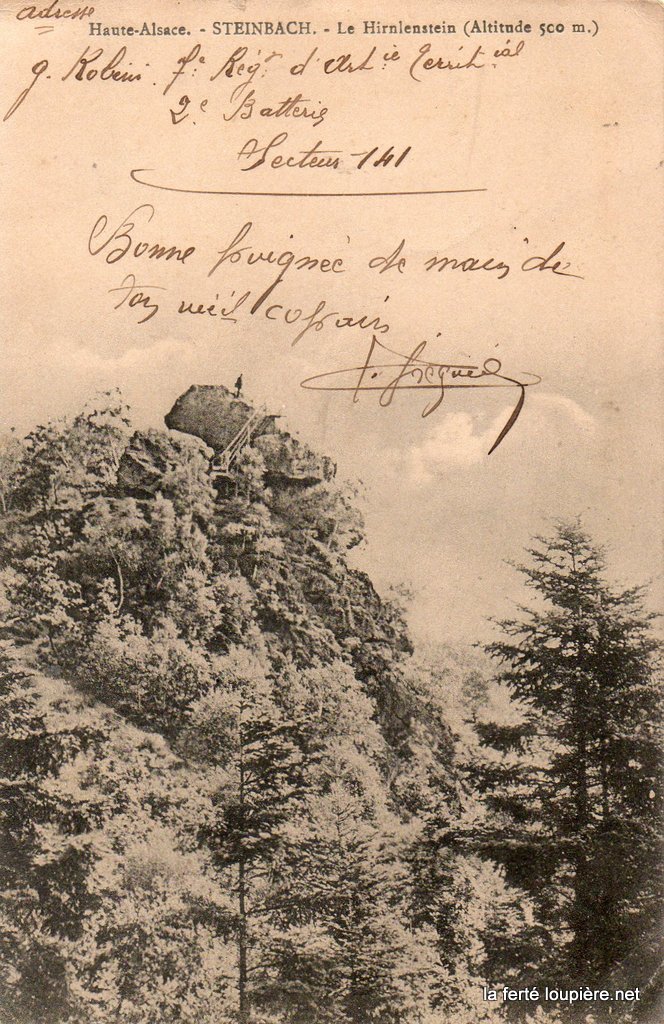 adresse
Haute-Alsace. - STEINBACH. - Le Hirnlenstein (Altitude 500 m.)
7e Régt d'Artie Territial
2e Batterie
Secteur 141
Bonne poignée de main de
ton vieil copain
la ferté loupière.net